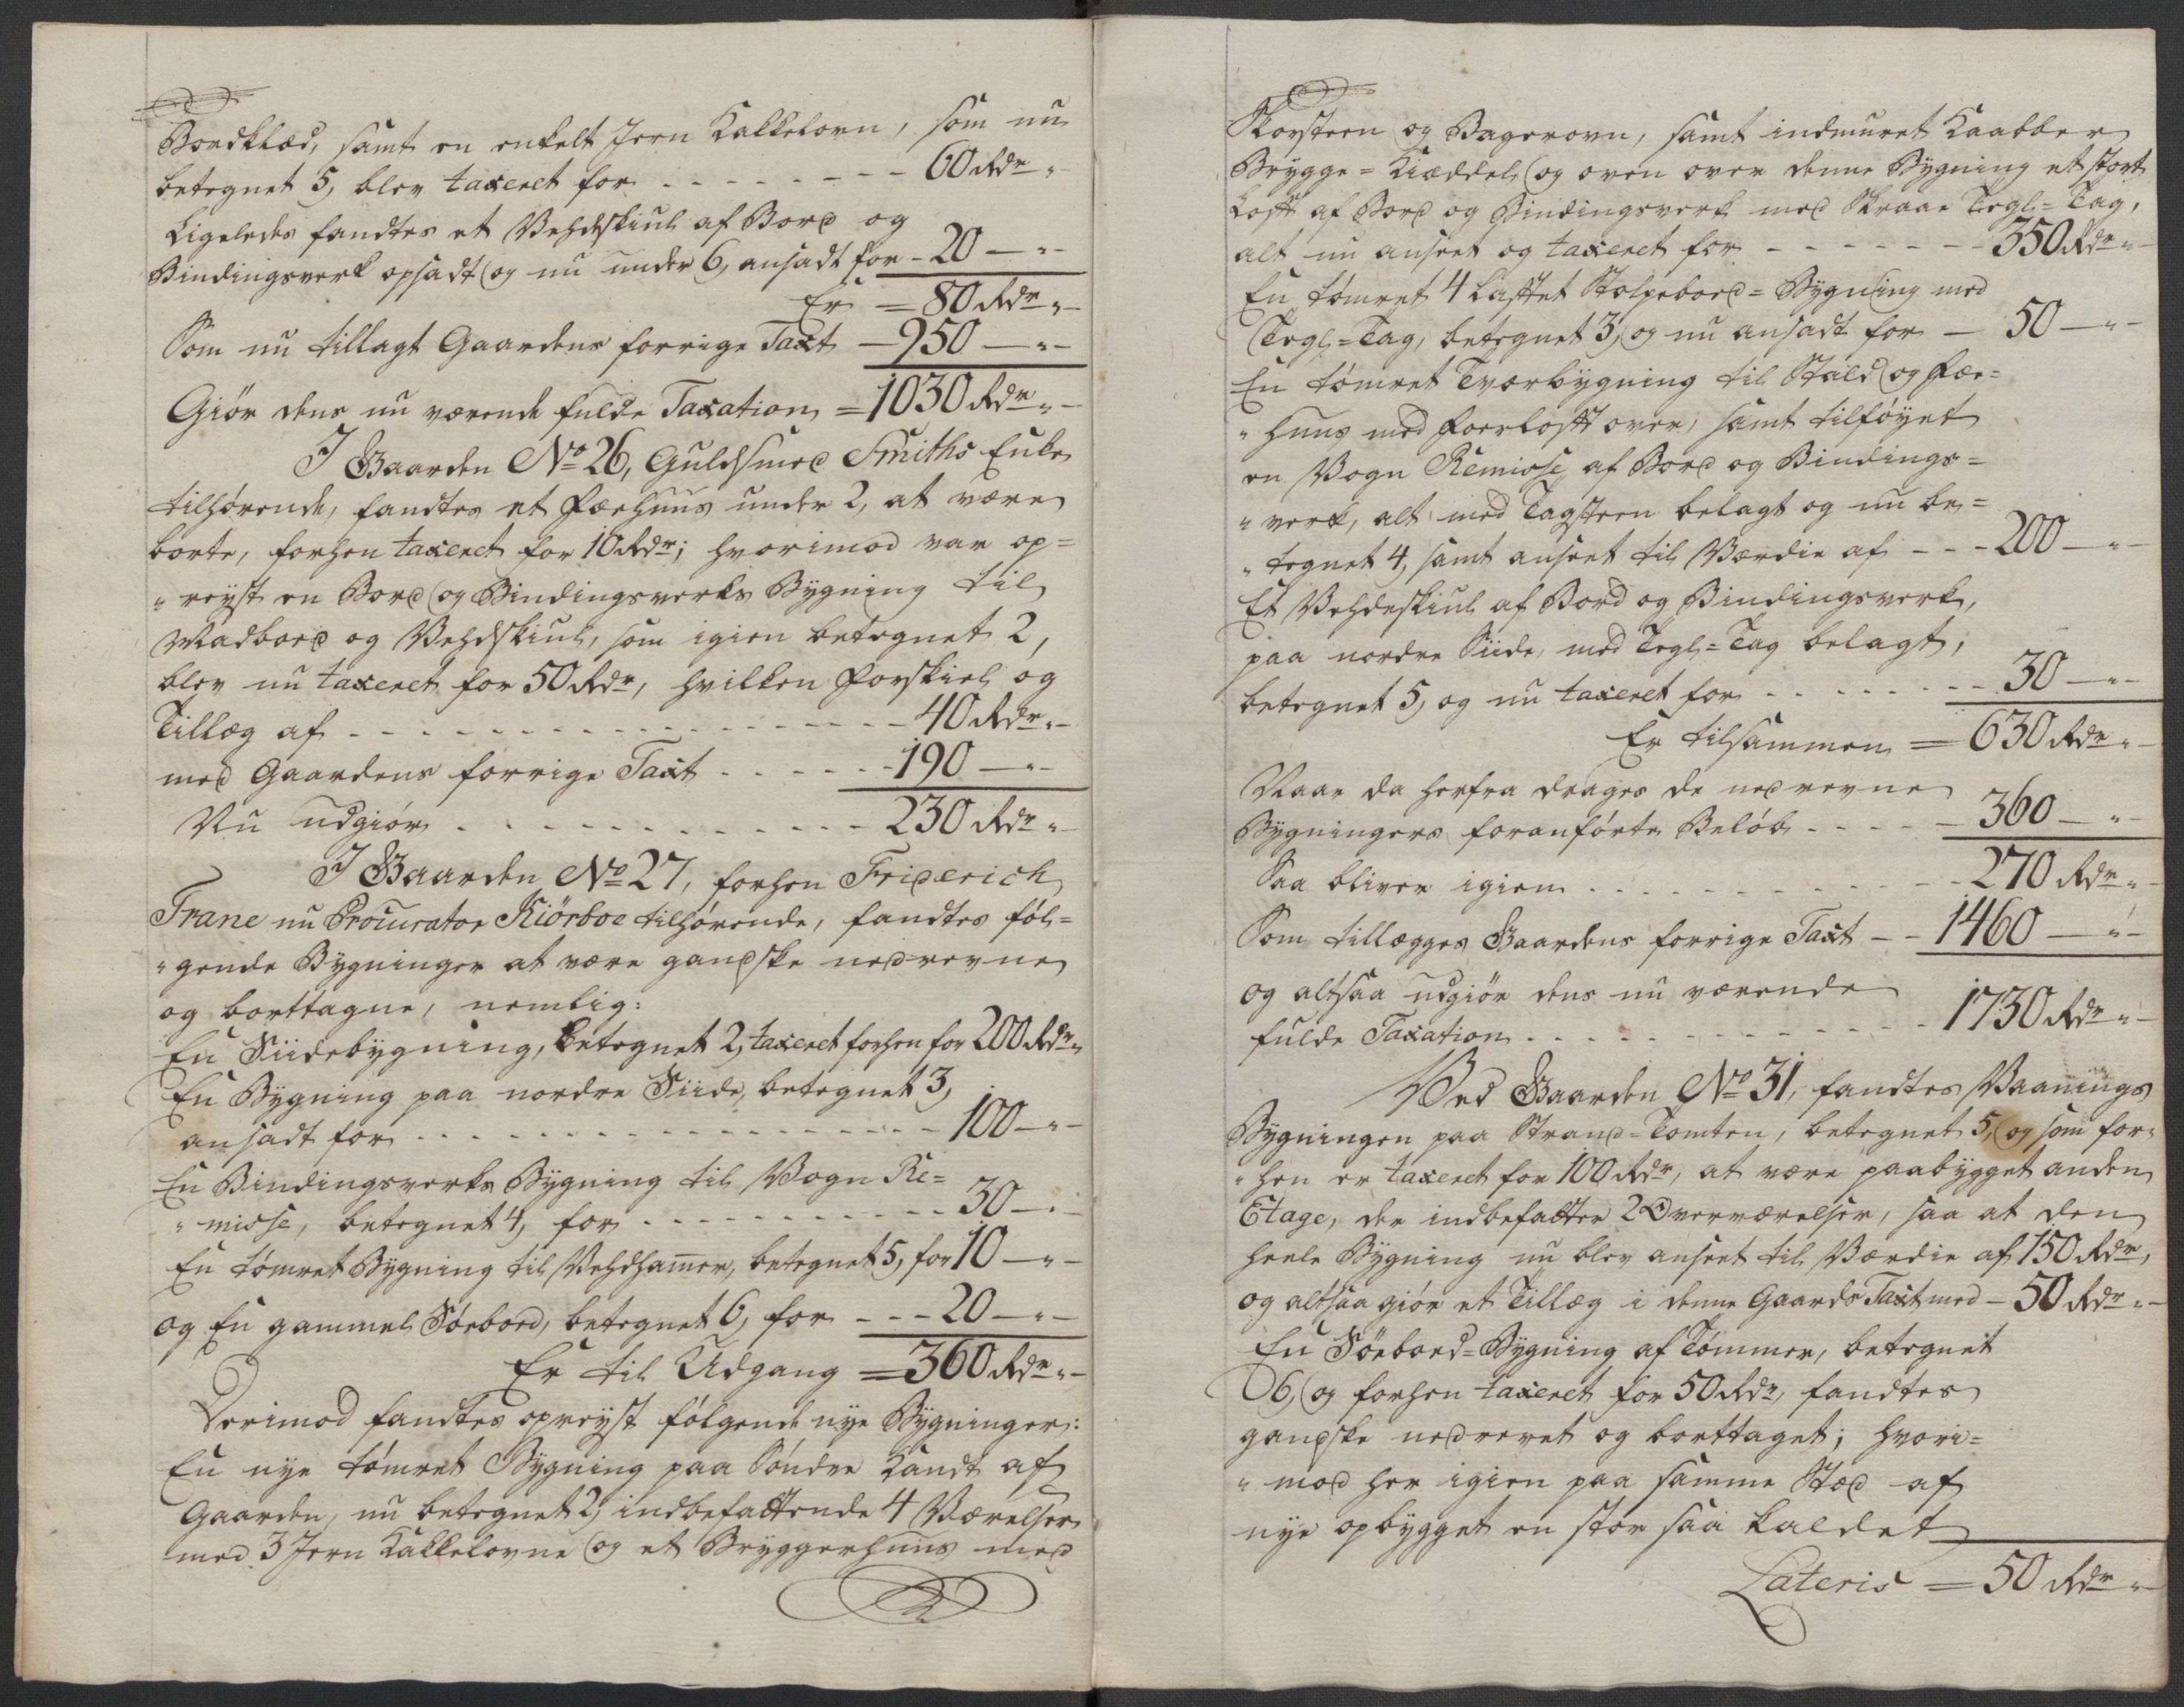 Bordklæd, samt en enkelt Jern Kakkelovn, som nu
betegnet 5, blev taxeret for - - - - - - - - 60 Rdr "
Ligeledes fandtes et Vehdskiul af Bord og
Bindingsverk opsadt og nu under 6, ansadt for - 20 — "
Er = 80 Rdr "
Som nu tillagt Gaardens forrige Taxt — 950 — "
Giör dens nu værende fulde Taxation = 1030 Rdr "
I Gaarden No 26, Guldsmed Smiths Enke
tilhørende, fandtes et Fæehuus under 2, at være
borte, forhen taxeret for 10 Rdr; hvorimod var op=
" reyst en Bord og Bindingsverks Bygning til
Madboed og Vehdskiul, som igien betegnet 2,
blev nu taxeret for 50 Rdr, hvilken Forskiel og
Tillæg af - - - - - - - - - - - - - 40 Rdr "
med Gaardens forrige Taxt - - - - - - 190 — "
Nu udgiör - - - - - - - - - - - - 230 Rdr "
I Gaarden No 27, forhen Friderich
Trane nu Procurator Kiörboe tilhørende, fandtes föl=
" gende Bygninger at være gandske nedrevne
og borttagne, nemlig:
En Siidebygning, betegnet 2, taxeret forhen for 200 Rdr "
En Bygning paa nordre Siide, betegnet 3,
ansadt for - - - - - - - - - - - - - - 100 — "
En Bindingsverks Bygning til Vogn Re=
" misse, betegnet 4, for - - - - - - - - - - 30 — "
En tömret Bygning til Vehdhamer, betegnet 5, for 10 — "
og En gammel Söeboed, betegnet 6, for - - - 20 — "
Er til Udgang = 360 Rdr "
Derimod fandtes opreyst fölgende nye Bygninger:
En nye tömret Bygning paa Söndre Kandt af
Gaarden, nu betegnet 2, indbefattende 4 Værelser
med 3 Jern Kakkelovne og et Bryggerhuus med
Skorsteen og Bagerovn, samt indmuret Kaabber
Brygge=Kiæddel, og oven over denne Bygning et stort
Loft af Bord og Bindingsverk med Skraae Tegl=Tag,
alt nu anseet og taxeret for - - - - - - - 350 Rdr "
En tömret 4 Laftet Stolpeboed=Bygning med
Tegl=Tag, betegnet 3, og nu ansadt for — 50 — "
En tömret Tværbygning til Stald og Fæe=
" huus med Foerloft over, samt tilföyet
en Vogn Remisse af Bord og Bindings=
" verk, alt med Tagsteen belagt og nu be=
" tegnet 4, samt anseet til Værdie af - - - 200 — "
Et Vehdeskiul af Bord og Bindingsverk,
paa nordre Siide, med Tegl=Tag belagt,
betegnet 5, og nu taxeret for - - - - - - - 30 — "
Er tilsammen = 630 Rdr "
Naar da herfra drages de nedrevne
Bygningers foranförte Belöb - - - - - 360 — "
Saa bliver igien - - - - - - - - - - - 270 Rdr "
Som tillægges Gaardens forrige Taxt - - 1460 — "
og altsaa udgiör dens nu værende
fulde Taxation - - - - - - - - - - - 1730 Rdr "
Ved Gaarden No 31, fandtes Vaanings
Bygningen paa Strand=Tomten, betegnet 5, og som for=
" hen er taxeret for 100 Rdr, at være paabygget anden
Etage, der indbefatter 2 Overværelser, saa at den
heele Bygning nu blev anseet til Værdie af 150 Rdr,
og altsaa giör et Tillæg i denne Gaards Taxt med — 50 Rdr "
En Söeboed=Bygning af Tömmer, betegnet
6, og forhen taxeret for 50 Rdr, fandtes
gandske nedrevet og borttaget; hvori=
" mod her igien paa samme Stæd af
nye opbygget en stor saa kaldet
Lateris = 50 Rdr "